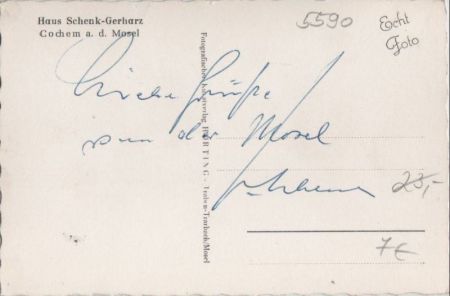 Haus Schenk-Gerharz
Cochem a. d. Mosel
5590
Echt
Foto
Liebe Grüße
von der Mosel
Fotografischer Kunstverlag HÖRTING - Traben-Trarbach/Mosel
25,-
7€